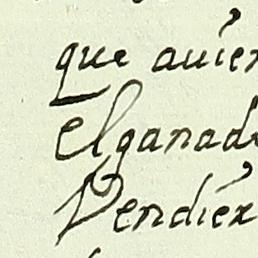 que auien
El ganado
Vendiex